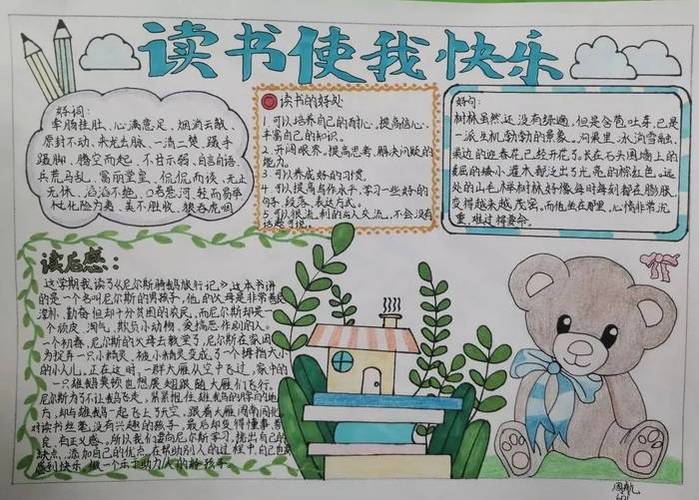 读书使我快乐
好词:
牵肠挂肚、心满意足、烟消云散、
原封不动、来龙去脉、一清二楚、蹑手
蹑脚、腾空而起、不甘示弱、自言自语、
兵荒马乱、富丽堂皇、侃侃而谈、无止
无休、滔滔不绝、口若悬河、轻而易举
化险为夷、美不胜收、狼吞虎咽
读书的好处
1.可以培养自己的耐心。提高信心、
丰富自己的知识。
2.开阔眼界、提高思考、解决问题的
能力。
3.可以养成好的习惯。
4.可以提高写作水平,学习一些好的
句子、段落、表达方式。
5.可以很流利的与人交流,不会没有
好句:
树林虽然还没有绿遍,但是含苞吐芽,已是
一派生机勃勃的景象。沟渠里,水淌雪融,
渠边的迎春花已经开花了。长在石头围墙上的
粗细的矮小灌木都泛出了光亮的棕红色。远
处的山毛榉树林好像每时每刻都在膨胀,
变得越来越茂密。而他坐在那里,心情非常沉
重,难过得要命。
读后感:
这学期我读了《尼尔斯骑鹅旅行记》这本书讲
的是一个名叫尼尔斯的男孩子,他的父母是非常善良
淳朴、勤奋但却十分贫困的农民,而尼尔斯却是一
个顽皮、淘气、欺负小动物、爱搞恶作剧的人。
一个初春,尼尔斯的父母去教堂了,尼尔斯在家因
为捉弄一只小精灵,被小精灵变成了一个拇指大小
的小人儿。正在这时,一群大雁从空中飞过,家中的
一只雄鹅莫顿也想展翅跟随大雁们飞行。
尼尔斯为了不让鹅飞走,紧紧抱住雄鹅的
方,却与雄鹅一起飞上了天空。跟着大雁周游
对读书丝毫没有兴趣的孩子,最后却变得懂事善
良,有正义感。所以我们要向尼尔斯学习,找出自己的
缺点,添加自己的优点,在帮助别人的过程中,自己也
感到快乐,做一个乐于助人的好孩子。
周航
601